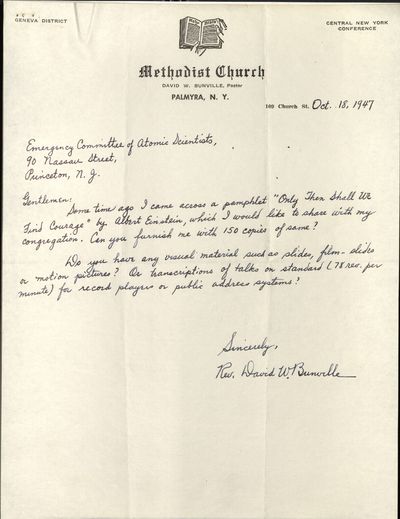 GENEVA DISTRICT
CENTRAL NEW YORK
CONFERENCE
Methodist Church
DAVID W. BUNVILLE, Pastor
PALMYRA, N. Y.
109 Church St. Oct. 18, 1947
Emergency Committee of Atomic Scientists,
90 Nassau Street,
Princeton, N. J.
Gentlemen:
Some time ago I came across a pamphlet "Only Then Shall We
Find Courage" by Albert Einstein, which I would like to share with my
congregation. Can you furnish me with 150 copies of same?
Do you have any visual material such as slides, film-slides
or motion pictures? Or transcriptions of talks on standard (78 rev. per
minute) for record players or public address systems?
Sincerely,
Rev. David W. Bunville